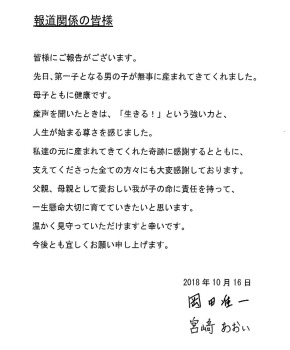 報道関係の皆様
皆様にご報告がございます。
先日、第一子となる男の子が無事に産まれてきてくれました。
母子ともに健康です。
産声を聞いたときは、「生きる！」という強い力と、
人生が始まる尊さを感じました。
私達の元に産まれてきてくれた奇跡に感謝するとともに、
支えてくださった全ての方々にも大変感謝しております。
父親、母親として愛おしい我が子の命に責任を持って、
一生懸命大切に育てていきたいと思います。
温かく見守っていただけますと幸いです。
今後とも宜しくお願い申し上げます。
2018年10月16日
岡田准一
宮﨑あおい